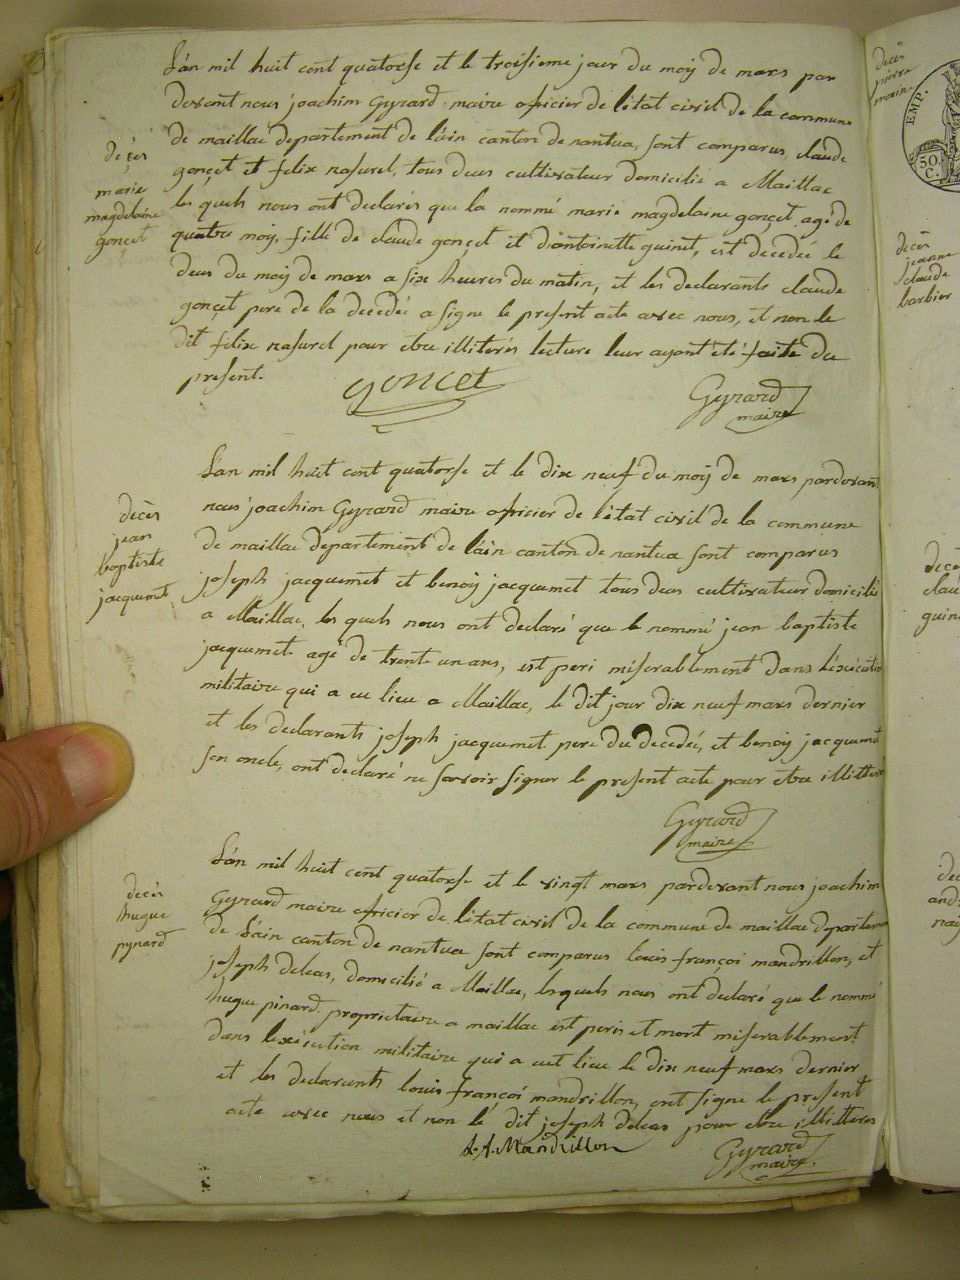 L'an mil huit cent quatorse et le troisieme jour du moy de mars par
devant nous joachim Gyrard maire oficier de l'état civil de la commune
de maillac departement de l'ain canton de nantua, sont comparus, claude
gonçet et felix nasurel, tous deus cultivateur domicilié a Maillac
les quels nous ont declarés que la nommé marie magdelaine gonçet agé de
quatre moy, fille de claude gonçet et d'antoinette guinet, est decedée le
deus du moy de mars a six heures du matin, et les declarants claude
gonçet pere de la decedée a signe le present acte avec nous, et non le
dit felix nasurel pour etre illiterés lecture leur ayant été faite du
present.
decès
marie
magdelaine
gonçet
goncet
Gyrard
maire
L'an mil huit cent quatorse et le dix neuf du moy de mars pardevant
nous joachim Gyrard maire oficier de l'état civil de la commune
de maillac departement de l'ain canton de nantua sont comparus
joseph jacquemet et benoy jacquemet tous deus cultivateur domicilié
a Maillac, les quels nous ont declaré que le nommé jean baptiste
jacquemet agé de trente un ans, est peri miserablement dans l'exécution
militaire qui a eu lieu a Maillac, le dit jour dix neuf mars dernier
et les declarants joseph jacquemet pere du decedé, et benoy jacquemet
son oncle, ont declaré ne savoir signer le present acte pour etre illitteré
decès
jean
baptiste
jacquemet
Gyrard
maire
L'an mil huit cent quatorse et le vingt mars pardevant nous joachim
Gyrard maire oficier de l'état civil de la commune de maillac departement
de l'ain canton de nantua sont comparus louis françoi mandrillon, et
joseph deleas, domicilié a Maillac, lesquels nous ont declaré que le nommé
hugue pinard proprietaire a maillac est peris et mort miserablement
dans l'exécution militaire qui a eut lieu le dix neuf mars dernier
et les declarants louis françoi mandrillon, ont signe le present
acte avec nous et non le dit joseph deleas pour etre illitteres
decès
hugue
pynard
L.f. Mandrillon
Gyrard
maire
decès
EMP.
50
C.
decès
jeanne
claude
barbier
guin